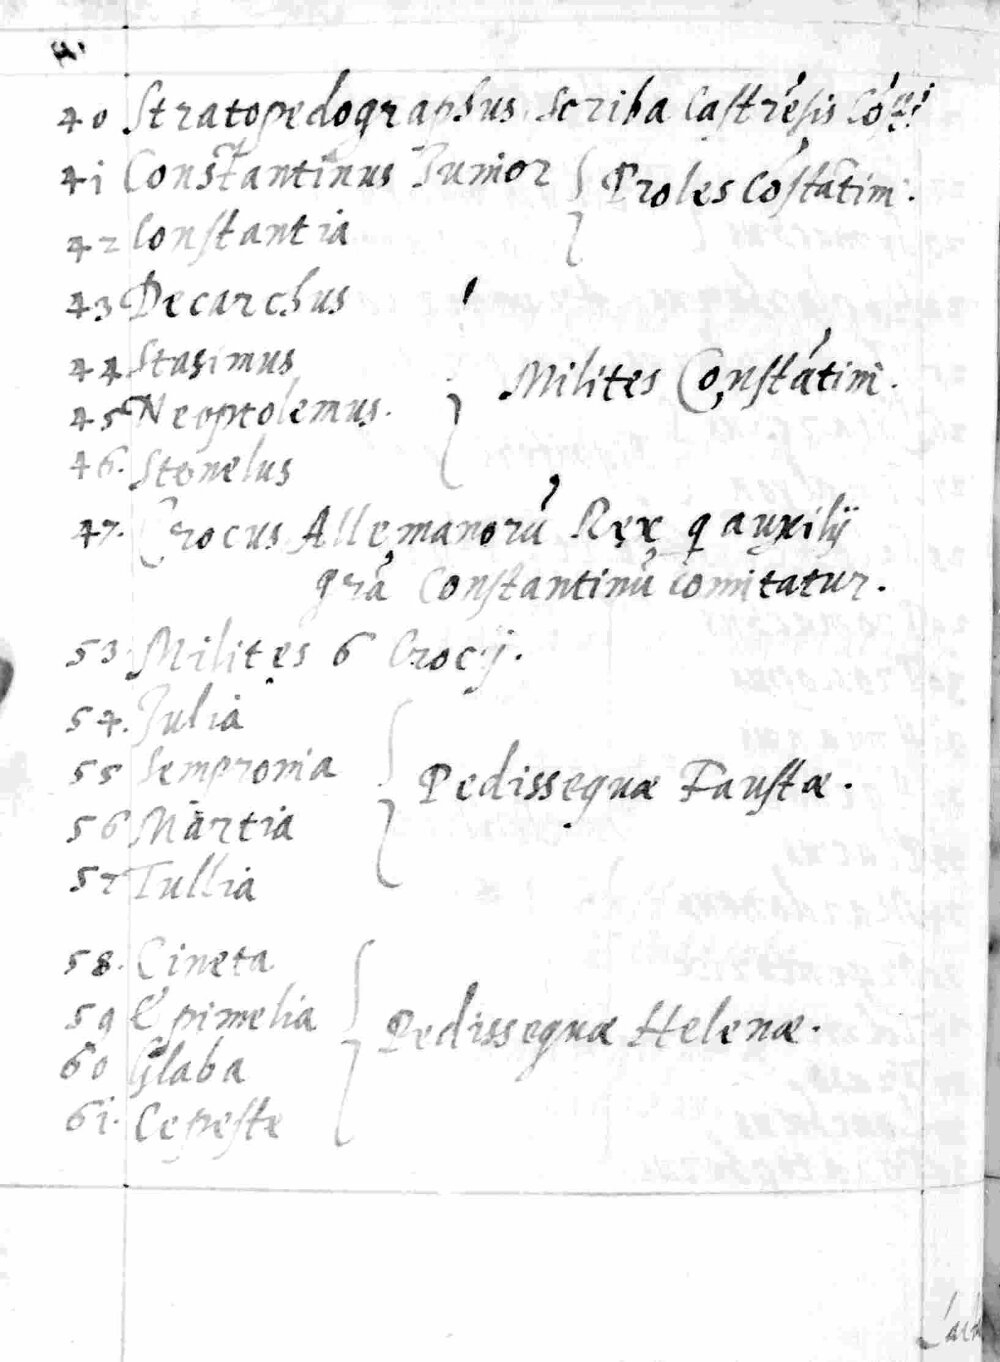 40 Stratopedographus, Scriba Castrēsis
41 Constantinus Junior } Proles Cōstātini.
42 Constantia
43 Decarchus
44 Stasimus
Milites Constātini.
45 Neoptolemus.
46. Stenelus
47. Crocus Allemanorū Rex q auxilij
grā Constantinū comitatur.
53. Milites 6 Crocij.
54. Julia
55 Sempronia } Pedissequæ Faustæ.
56 Martia
57 Tullia
58. Cineta
59 Epimelia } Pedissequæ Helenæ.
60 Glaba
61. Cepeste